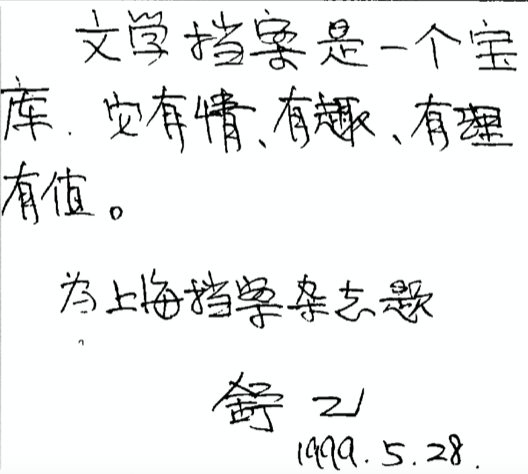 文学挡案是一个宝
库．它有情、有趣、有理
有值。
为上海挡案杂志题
舒乙
1999.5.28.